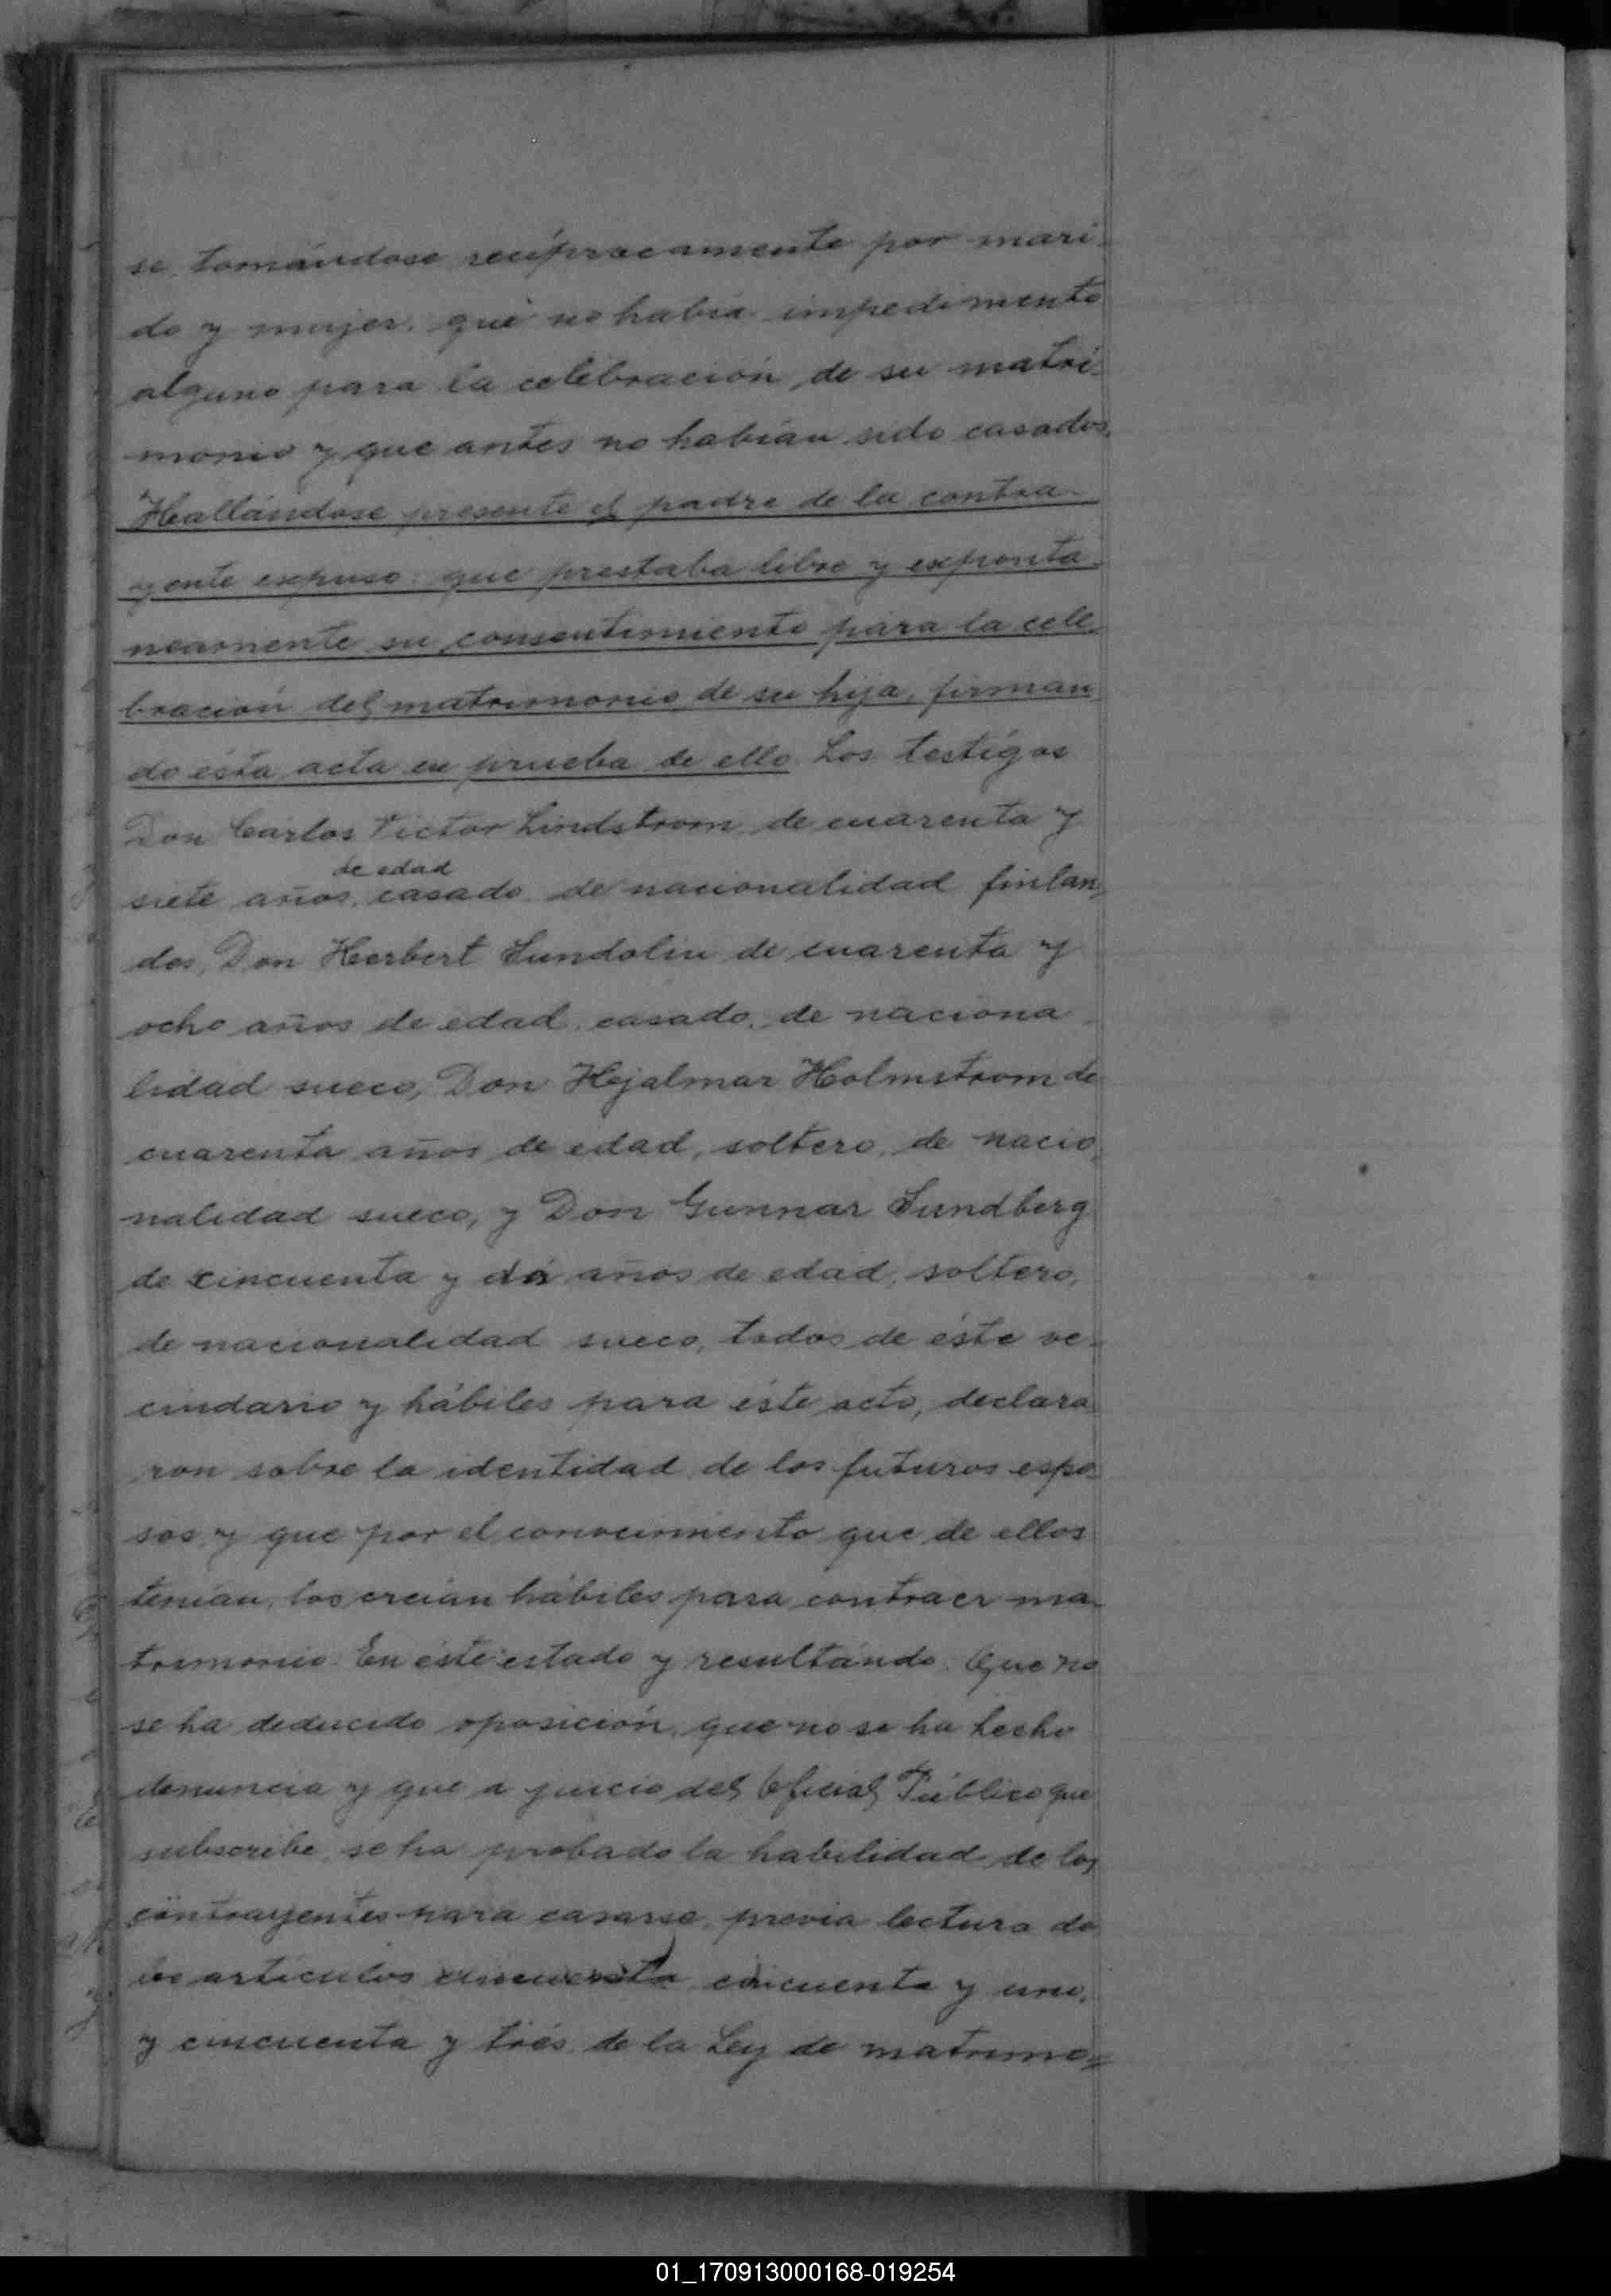 se, tomándose recíprocamente por mari-
do y mujer, que no había impedimento
alguno para la celebración de su matri-
monio y que antes no habían sido casados.
Hallándose presente el padre de la contra-
yente expuso: que prestaba libre y exponta-
neamente su consentimiento para la cele-
bración del matrimonio de su hija, firman
do ésta acta en prueba de ello. Los testigos
Don Carlos Victor Lindstrom de cuarenta y
de edad
siete años, casado, de nacionalidad finlan-
des, Don Herbert Sundolin de cuarenta y
ocho años de edad, casado, de naciona
lidad sueco, Don Hejalmar Holmstrom de
cuarenta años de edad, soltero, de nacio-
nalidad sueco, y Don Gunnar Sundberg
de cincuenta y años de edad, soltero,
de nacionalidad sueco, todos de éste ve-
cindario y hábiles para éste acto, declara-
ron sobre la identidad de los futuros espo-
sos, y que por el conocimiento que de ellos
tenían, los creían hábiles para contraer ma-
trimonio. En éste estado y resultando: Que no
se ha deducido oposición, que no se ha hecho
denuncia y que a juicio del Oficial Público que
subscribe, se ha probado la habilidad de los
contrayentes para casarse, previa lectura de
los artículos cincuenta, cincuenta y uno,
y cincuenta y trés de la Ley de matrimo-
01_170913000168-019254